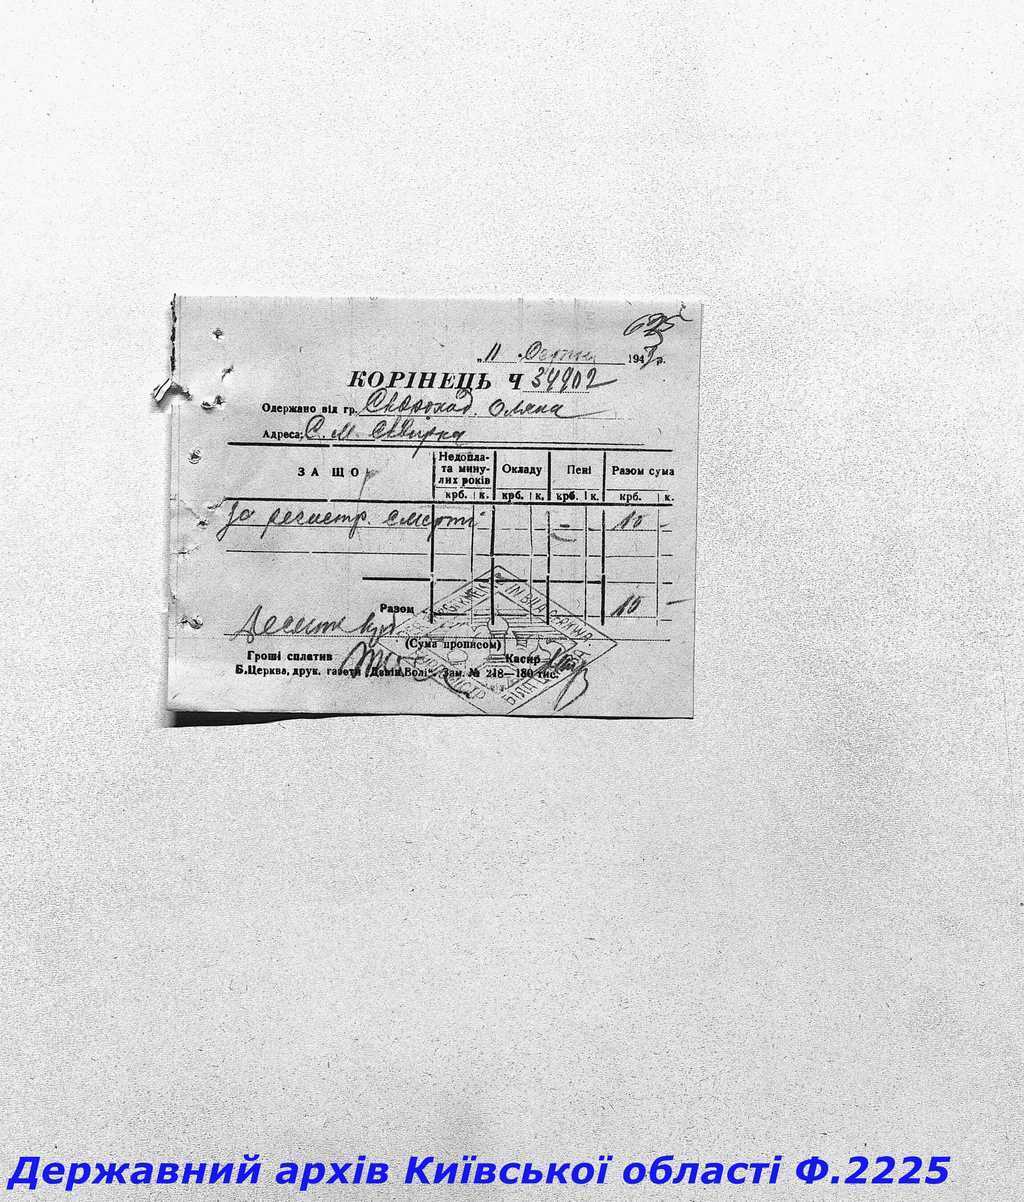 625
„11 Серпня 194 р.
КОРІНЕЦЬ Ч 34902
Одержано від гр. Скороход Оляна
Адреса: С. М. Сквирка
ЗА ЩО Недопла-та мину-лих років Окладу Пені Разом сума
крб. к. крб. к. крб. к. крб. к.
за регистр. смерти – 10 –
Разом 10 –
Десять крб
(Сума прописом)
Гроші сплатив Касир
Б.Церква, друк. газети „Дзвін Волі“. Зам. № 218—180 тис.
IN BILA CERKWA
БІЛА ЦЕРКВА
Державний архів Київської області Ф.2225